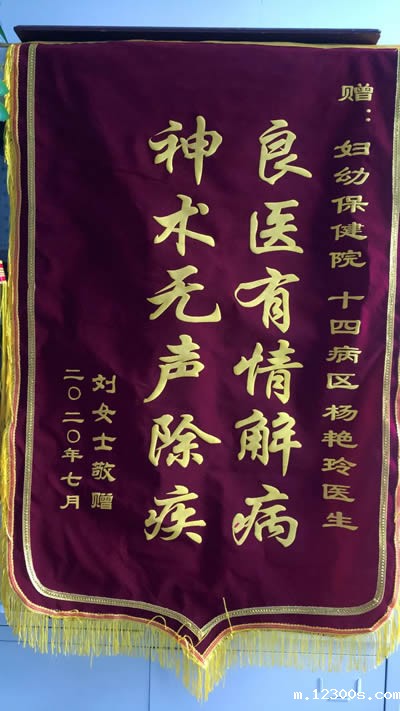 赠：妇幼保健院 十四病区 杨艳玲医生
良医有情解病
神术无声除疾
刘女士敬赠
二〇二〇年七月
m.12300s.com